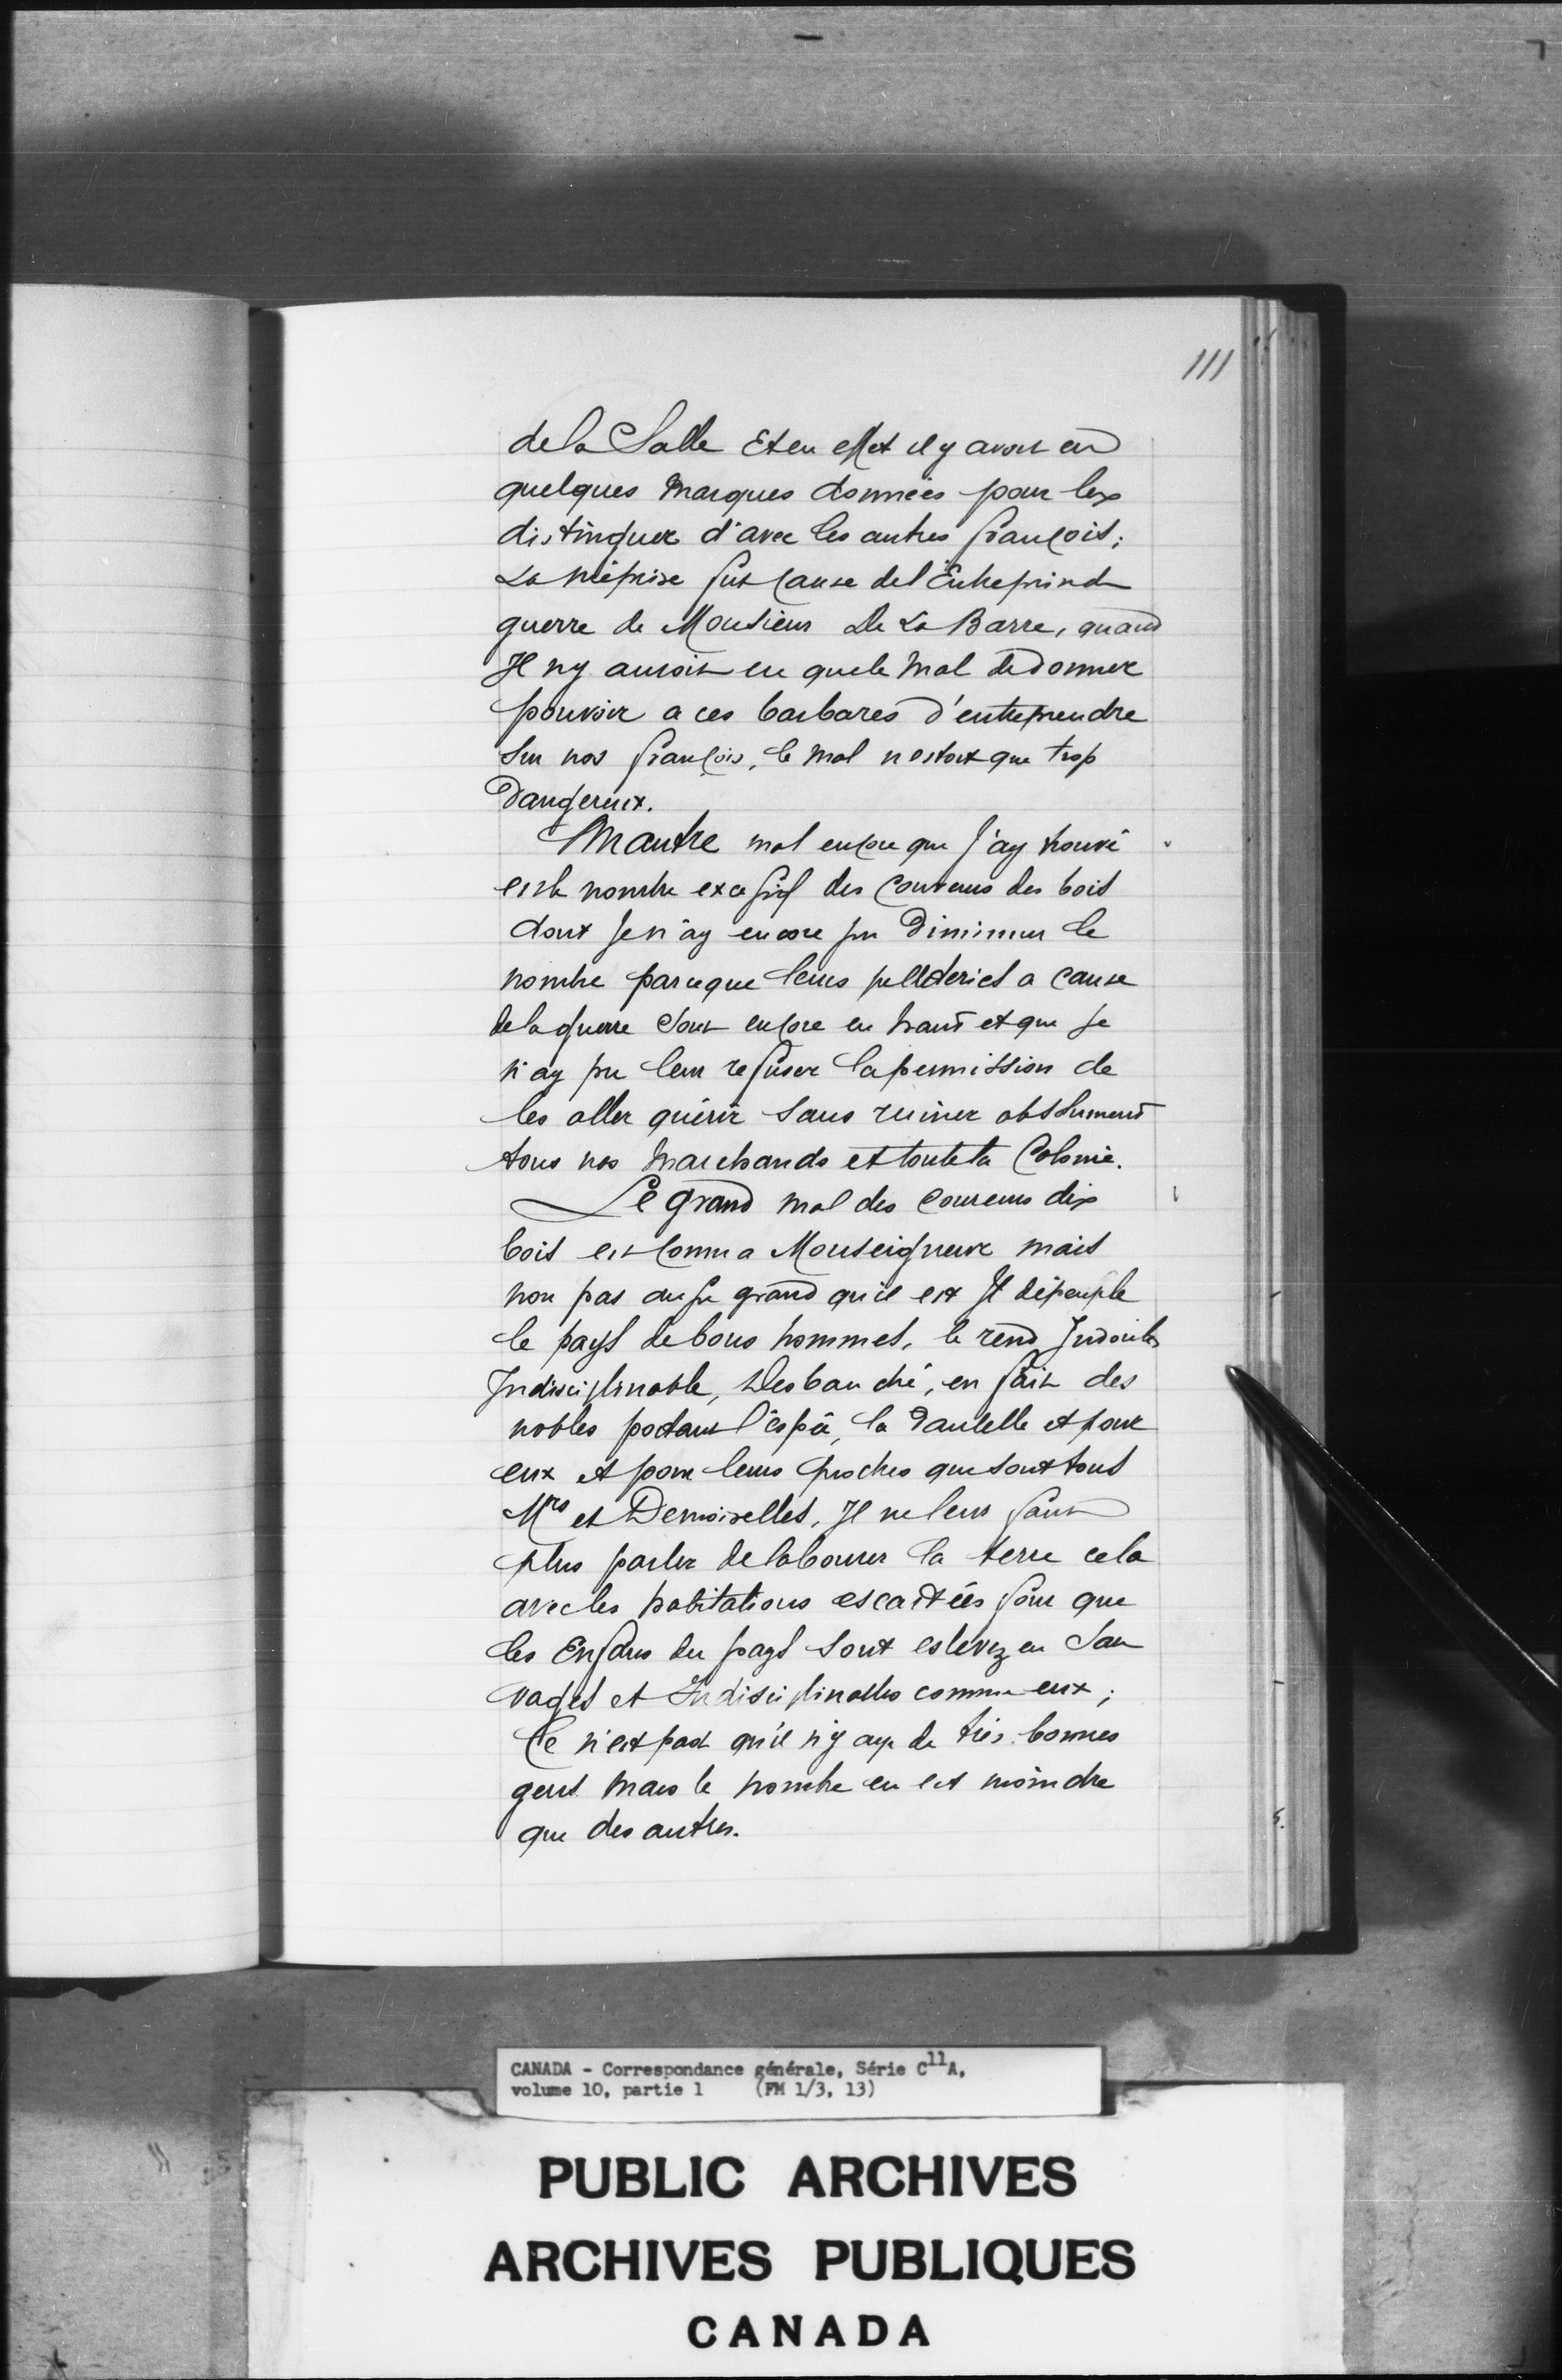 111
de la Salle Et en effet il y avoit eu
quelques marques données pour les
distinguer d'avec les autres françois;
La méprise fut cause de l'Entreprinse de
guerre de Monsieur De La Barre, quand
Il n'y auroit eu que le mal de donner
pouvoir a ces barbares d'entreprendre
sur nos françois, le mal n'estoit que trop
Dangereux.
Un autre mal encore que j'ay trouvé
est le nombre excessif des coureurs des bois
dont je n'ay encore pu Diminuer le
nombre parceque leurs pelleteries a cause
de la guerre sont encore en haut et que je
n'ay pu leur refuser la permission de
les aller quérir sans ruiner absolument
tous nos marchands et toute la Colonie.
Le grand mal des coureurs des
bois est connu a Monseigneur mais
non pas aussy grand qu'il est Il dépeuple
le pays de bons hommes, le rend Indociles
Indisciplinable, Desbauché, en fait des
nobles portant l'éspée, la dantelle et pour
eux et pour leurs proches que sont tous
Mrs et Demoiselles, Il ne leur faut
plus parler de labourer la terre cela
avec les habitations escartées font que
les Enfans du pays sont eslevez en Sau
vages et Indisciplinables comme eux;
Ce n'est pas qu'il n'y aye de très bonnes
gens mais le nombre en est moindre
que des autres.
CANADA - Correspondance générale, Série C11A,
volume 10, partie 1 (FM 1/3, 13)
PUBLIC ARCHIVES
ARCHIVES PUBLIQUES
CANADA